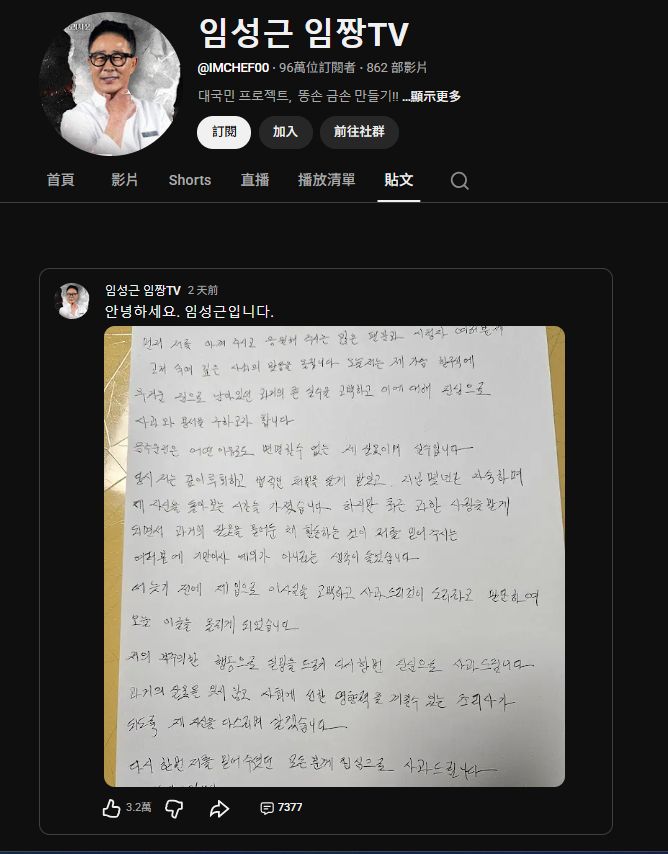 임성근 임짱TV
@IMCHEF00 · 96萬位訂閱者 · 862 部影片
대국민 프로젝트, 똥손 금손 만들기!! ...顯示更多
訂閱 加入 前往社群
首頁 影片 Shorts 直播 播放清單 貼文
임성근 임짱TV 2 天前
안녕하세요. 임성근입니다.
먼저 저를 아껴 주시고 응원해 주시는 많은 팬분과 시청자 여러분께
고개 숙여 깊은 사죄의 말씀을 드립니다. 오늘 저는 제 가슴 한구석에
무거운 짐으로 남아있던 과거의 큰 실수를 고백하고 이에 대해 진심으로
사과와 용서를 구하고자 합니다
음주운전은 어떤 이유로도 변명할 수 없는 제 잘못이며 실수입니다
당시 저는 깊이 뉘우치고 법적인 처벌을 달게 받았고, 지난 몇 년간 자숙하며
제 자신을 돌아보는 시간을 가졌습니다. 하지만 최근 과한 사랑을 받게
되면서 과거의 잘못을 묻어둔 채 활동하는 것이 저를 믿어 주시는
여러분에 기만이자 예의가 아니라는 생각이 들었습니다
더 늦기 전에 제 입으로 이 사실을 고백하고 사과드리는 것이 도리라고 판단하여
오늘 이 글을 올리게 되었습니다
저의 부주의한 행동으로 실망을 드려 다시 한번 진심으로 사과드립니다
과거의 잘못을 잊지 않고 사회에 선한 영향력을 끼칠 수 있는 조리사가
되도록 제 자신을 다스리며 살겠습니다
다시 한번 저를 믿어 주셨던 모든 분께 진심으로 사과드립니다
3.2萬 7377